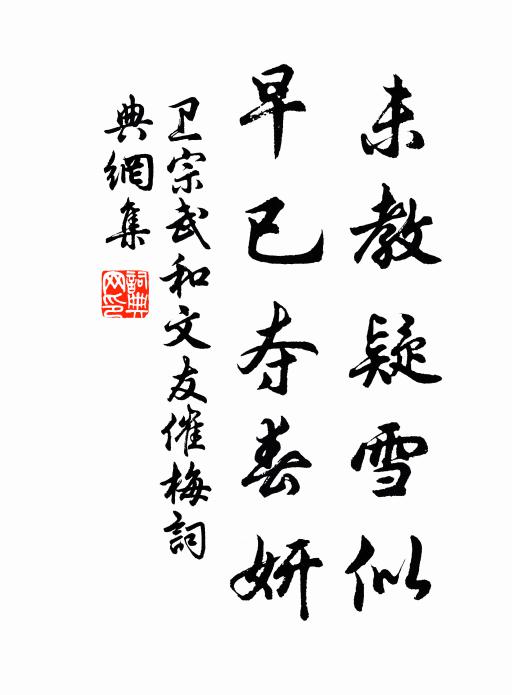 未教疑雪似
早已夺春妍
卫宗武和文友催梅詞
典網集
詞典网印